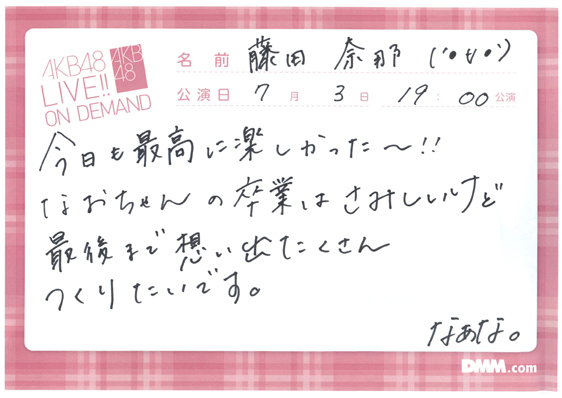 AKB48
LIVE!!
ON DEMAND
AKB
48
名前 藤田 奈那 (‘•ㅂ•’)
公演日 7月 3日 19:00公演
今日も最高に楽しかった〜!!
なおちゃんの卒業はさみしいけど
最後まで想い出たくさん
つくりたいです。
なぁな。
DMM.com